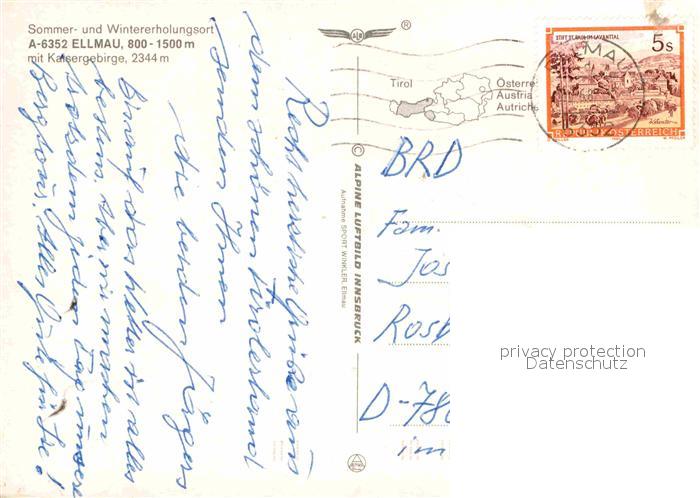 Sommer- und Wintererholungsort
A-6352 ELLMAU, 800 - 1500 m
mit Kaisergebirge, 2344 m
®
Tirol
Österre
Austria
Autriche
STIFT ST. PAUL IM LAVANTTAL
5 s
REPUBLIK ÖSTERREICH
MAU
6352
© ALPINE LUFTBILD INNSBRUCK
Aufnahme SPORT WINKLER, Ellmau
Recht herzliche Grüße aus
dem schönen Tirolerland
senden Ihnen
die beiden Jägers
Bis auf das Wetter ist alles
bestens. Aber wir machen
trotzdem jeden Tag unsere
Bergtour. Alles Gute für Sie!
BRD
Fam.
Jos
Rosb
D-780
im
privacy protection
Datenschutz